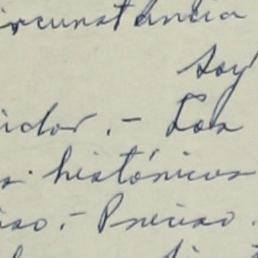 ircunstancia
Soy
idor. - Los
s históricos
iso. - Preciso.